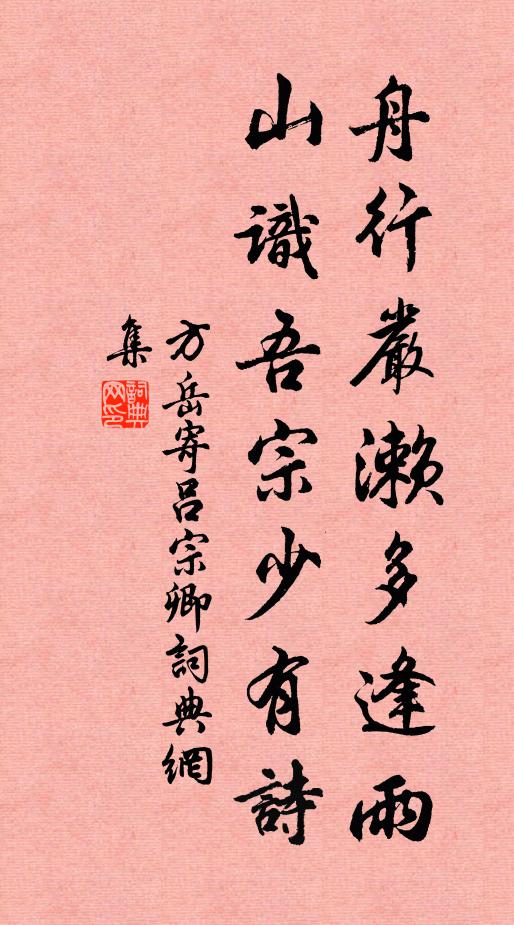 舟行嚴瀨多逢雨
山識吾宗少有詩
方岳寄呂宗卿詞典網
集
詞典
网印